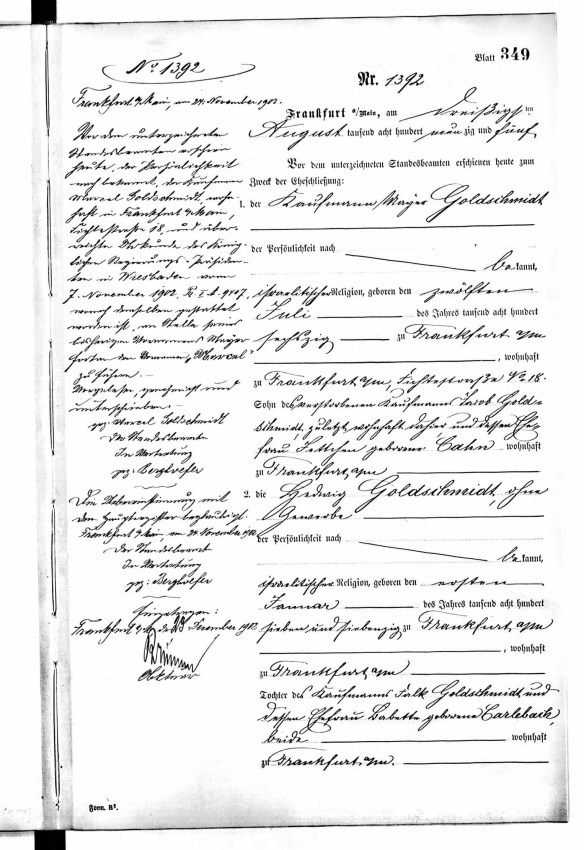 Blatt 349
Nr. 1392
Frankfurt a/Main, am dreißigsten
August tausend acht hundert neunzig und fünf
Vor dem unterzeichneten Standesbeamten erschienen heute zum
Zweck der Eheschließung:
1. der Kaufmann Mayer Goldschmidt
der Persönlichkeit nach
bekannt,
israelitischer Religion, geboren den zwölften
Juli des Jahres tausend acht hundert
sechszig zu Frankfurt a/m
, wohnhaft
zu Frankfurt a/m, Fichtestraße No 18.
Sohn des verstorbenen Kaufmanns Jacob Gold-
schmidt, zuletzt wohnhaft dahier und dessen Ehe-
frau Jettchen geborene Cahn wohnhaft
zu Frankfurt a/m
2. die Hedwig Goldschmidt, ohne
Gewerbe
der Persönlichkeit nach
bekannt,
israelitischer Religion, geboren den ersten
Januar des Jahres tausend acht hundert
sieben und siebenzig zu Frankfurt a/m
, wohnhaft
zu Frankfurt a/m
Tochter des Kaufmanns Falk Goldschmidt und
dessen Ehefrau Babette geborene Carlebach,
beide wohnhaft
zu Frankfurt a/m.
No 1392
Frankfurt a/Main, am 24. November 1902.
Vor dem unterzeichneten
Standesbeamten erschien
heute, der Persönlichkeit
nach bekannt, der Kaufmann
Marcel Goldschmidt, wohn-
haft in Frankfurt a/Main,
Fichtestraße 18, und über-
reichte Urkunde des König-
lichen Regierungs-Präsiden-
ten in Wiesbaden vom
7. November 1902, Pr I. A. 9407,
wonach demselben gestattet
worden ist, an Stelle seines
bisherigen Vornamens Mayer
fortan den Vornamen "Marcel"
zu führen.
Vorgelesen, genehmigt und
unterschrieben.
gez. Marcel Goldschmidt
Der Standesbeamte
In Vertretung
gez. Berghoefer
Die Uebereinstimmung mit
dem Hauptregister beglaubigt.
Frankfurt a/Main, am 24. November 1902
Der Standesbeamte
In Vertretung
gez. Berghoefer
Eingetragen:
Frankfurt a/M den Dezember 1902
Aktuar
Form. B¹.